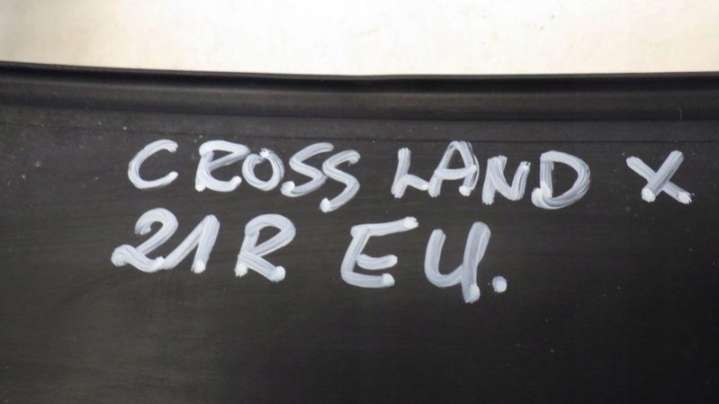 CROSS LAND X
21R EU.